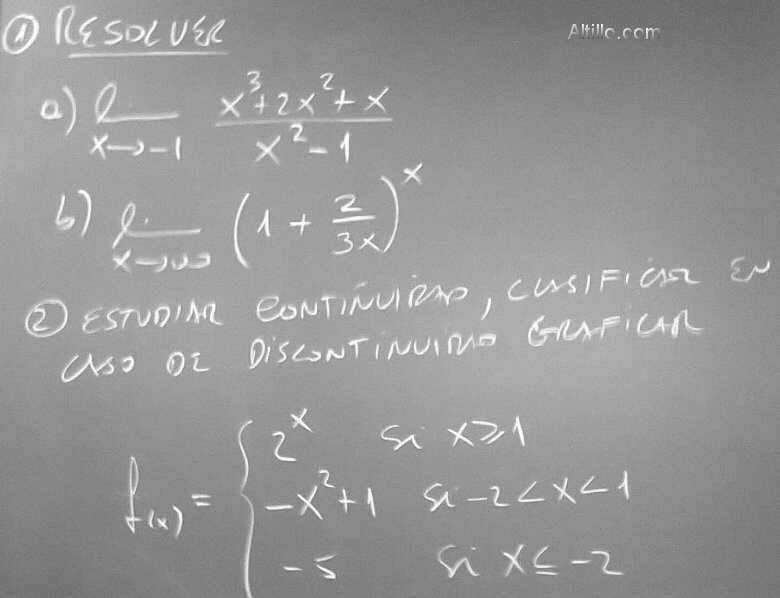 ① RESOLVER
Altillo.com
a) lim x→-1 (x³+2x²+x)/(x²-1)
b) lim x→∞ (1 + 2/3x)^x
② ESTUDIAR CONTINUIDAD, CLASIFICAR EN
CASO DE DISCONTINUIDAD GRAFICAR
f(x) = { 2^x si x≥1
-x²+1 si -2<x<1
-5 si x≤-2